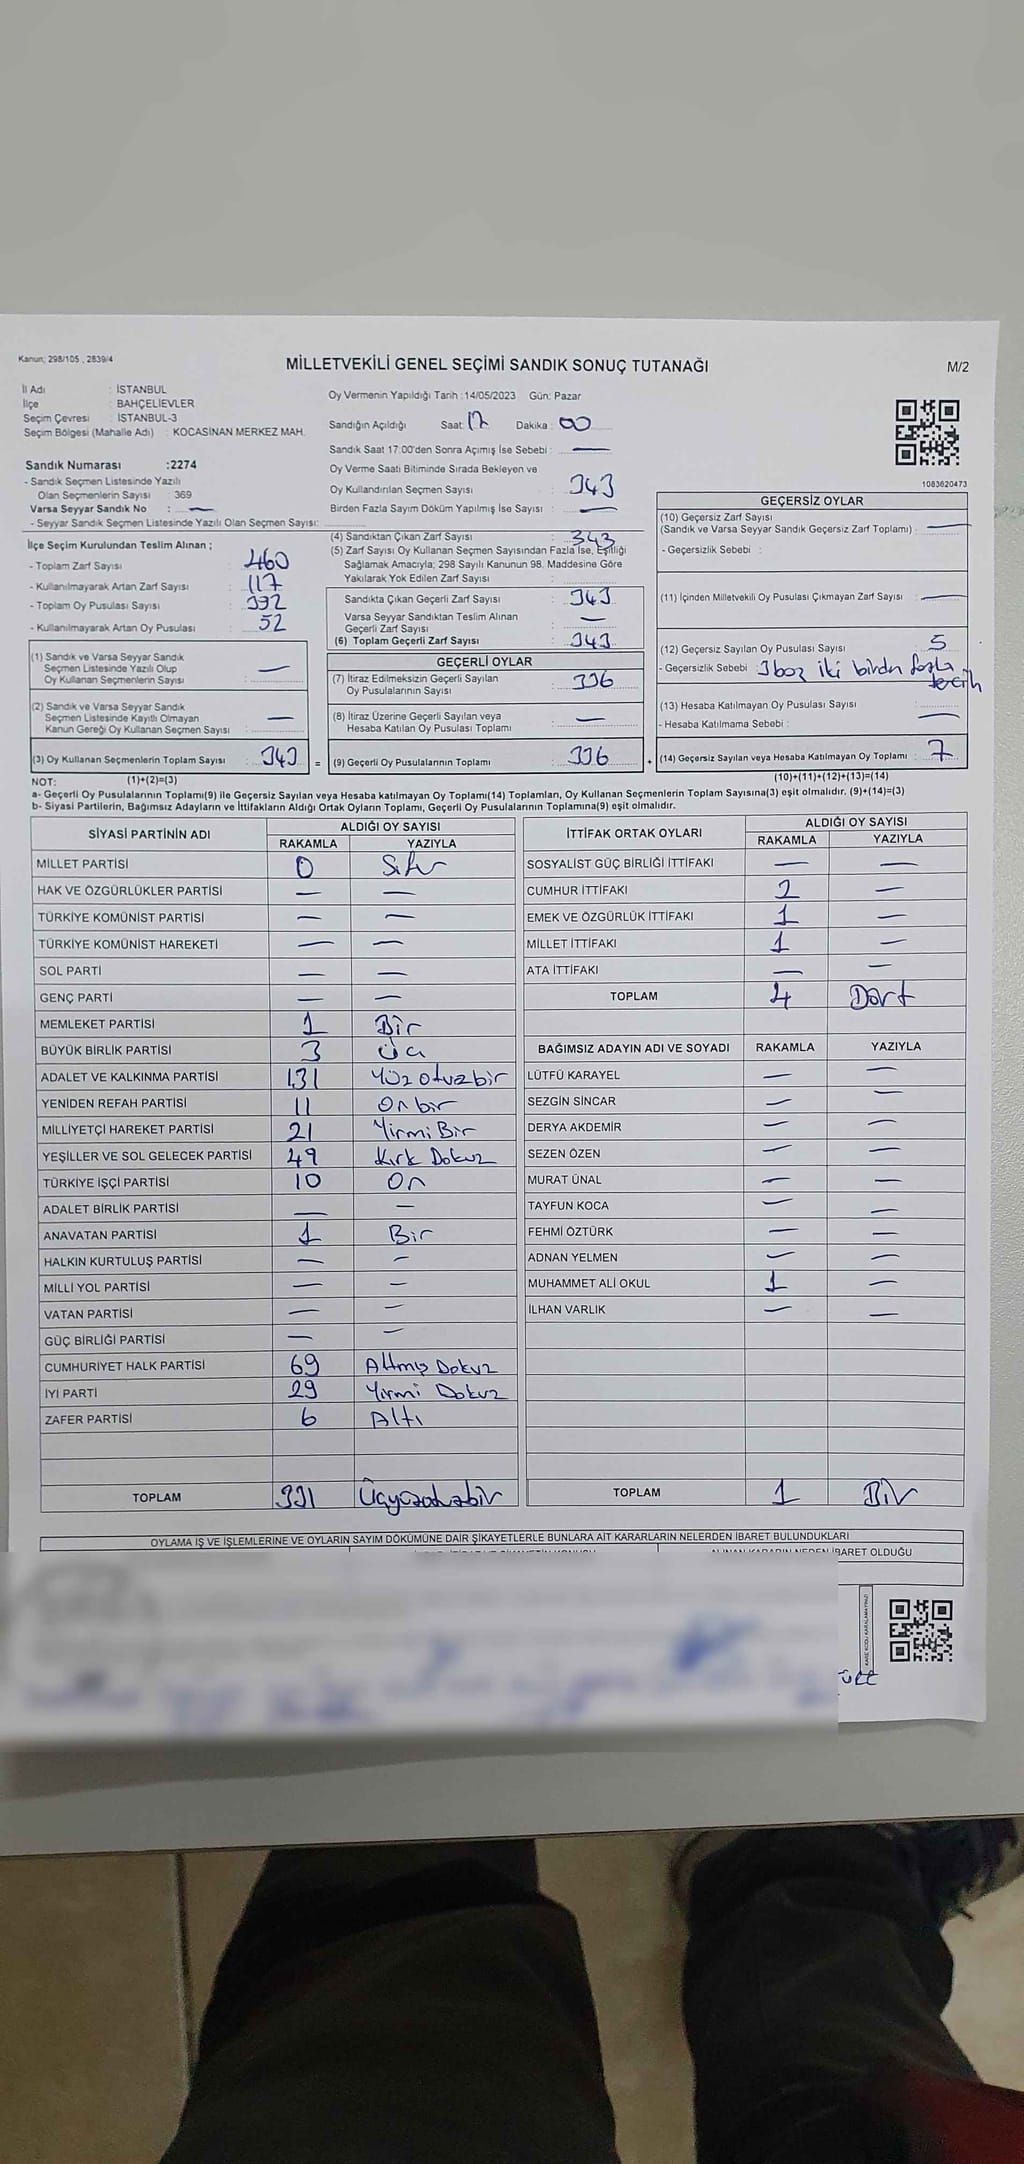 Kanun; 298/105 , 2839/4
MİLLETVEKİLİ GENEL SEÇİMİ SANDIK SONUÇ TUTANAĞI
M/2
İl Adı : İSTANBUL
İlçe : BAHÇELİEVLER
Seçim Çevresi : İSTANBUL-3
Seçim Bölgesi (Mahalle Adı) : KOCASİNAN MERKEZ MAH.
Sandık Numarası :2274
- Sandık Seçmen Listesinde Yazılı
Olan Seçmenlerin Sayısı : 369
Varsa Seyyar Sandık No : —
- Seyyar Sandık Seçmen Listesinde Yazılı Olan Seçmen Sayısı:
İlçe Seçim Kurulundan Teslim Alınan ;
- Toplam Zarf Sayısı : 460
- Kullanılmayarak Artan Zarf Sayısı : 117
- Toplam Oy Pusulası Sayısı : 392
- Kullanılmayarak Artan Oy Pusulası : 52
(1) Sandık ve Varsa Seyyar Sandık
Seçmen Listesinde Yazılı Olup
Oy Kullanan Seçmenlerin Sayısı : —
(2) Sandık ve Varsa Seyyar Sandık
Seçmen Listesinde Kayıtlı Olmayan
Kanun Gereği Oy Kullanan Seçmen Sayısı : —
(3) Oy Kullanan Seçmenlerin Toplam Sayısı : 343 =
Oy Vermenin Yapıldığı Tarih :14/05/2023 Gün: Pazar
Sandığın Açıldığı Saat: 17 Dakika : 00
Sandık Saat 17:00'den Sonra Açımış İse Sebebi : —
Oy Verme Saati Bitiminde Sırada Bekleyen ve
Oy Kullandırılan Seçmen Sayısı : 343
Birden Fazla Sayım Döküm Yapılmış İse Sayısı : —
(4) Sandıktan Çıkan Zarf Sayısı : 343
(5) Zarf Sayısı Oy Kullanan Seçmen Sayısından Fazla İse, Eşitliği
Sağlamak Amacıyla; 298 Sayılı Kanunun 98. Maddesine Göre
Yakılarak Yok Edilen Zarf Sayısı :
Sandıkta Çıkan Geçerli Zarf Sayısı : 343
Varsa Seyyar Sandıktan Teslim Alınan
Geçerli Zarf Sayısı : —
(6) Toplam Geçerli Zarf Sayısı : 343
GEÇERLİ OYLAR
(7) İtiraz Edilmeksizin Geçerli Sayılan
Oy Pusulalarının Sayısı : 336
(8) İtiraz Üzerine Geçerli Sayılan veya
Hesaba Katılan Oy Pusulası Toplamı : —
(9) Geçerli Oy Pusulalarının Toplamı : 336 +
1083620473
GEÇERSİZ OYLAR
(10) Geçersiz Zarf Sayısı
(Sandık ve Varsa Seyyar Sandık Geçersiz Zarf Toplamı) : —
- Geçersizlik Sebebi :
(11) İçinden Milletvekili Oy Pusulası Çıkmayan Zarf Sayısı : —
(12) Geçersiz Sayılan Oy Pusulası Sayısı : 5
- Geçersizlik Sebebi : 3 boz iki birdn fazla
tercih
(13) Hesaba Katılmayan Oy Pusulası Sayısı :
- Hesaba Katılmama Sebebi : —
(14) Geçersiz Sayılan veya Hesaba Katılmayan Oy Toplamı : 7
NOT: (1)+(2)=(3) (10)+(11)+(12)+(13)=(14)
a- Geçerli Oy Pusulalarının Toplamı(9) ile Geçersiz Sayılan veya Hesaba katılmayan Oy Toplamı(14) Toplamları, Oy Kullanan Seçmenlerin Toplam Sayısına(3) eşit olmalıdır. (9)+(14)=(3)
b- Siyasi Partilerin, Bağımsız Adayların ve İttifakların Aldığı Ortak Oyların Toplamı, Geçerli Oy Pusulalarının Toplamına(9) eşit olmalıdır.
SİYASİ PARTİNİN ADI ALDIĞI OY SAYISI
RAKAMLA YAZIYLA
MİLLET PARTİSİ 0 Sıfır
HAK VE ÖZGÜRLÜKLER PARTİSİ — —
TÜRKİYE KOMÜNİST PARTİSİ — —
TÜRKİYE KOMÜNİST HAREKETİ — —
SOL PARTİ — —
GENÇ PARTİ — —
MEMLEKET PARTİSİ 1 Bir
BÜYÜK BİRLİK PARTİSİ 3 Üç
ADALET VE KALKINMA PARTİSİ 131 Yüz otuzbir
YENİDEN REFAH PARTİSİ 11 On bir
MİLLİYETÇİ HAREKET PARTİSİ 21 Yirmi Bir
YEŞİLLER VE SOL GELECEK PARTİSİ 49 Kırk Dokuz
TÜRKİYE İŞÇİ PARTİSİ 10 On
ADALET BİRLİK PARTİSİ — —
ANAVATAN PARTİSİ 1 Bir
HALKIN KURTULUŞ PARTİSİ — —
MİLLİ YOL PARTİSİ — —
VATAN PARTİSİ — —
GÜÇ BİRLİĞİ PARTİSİ — —
CUMHURİYET HALK PARTİSİ 69 Altmış Dokuz
İYİ PARTİ 29 Yirmi Dokuz
ZAFER PARTİSİ 6 Altı
TOPLAM 331 Üçyüzotuzbir
İTTİFAK ORTAK OYLARI ALDIĞI OY SAYISI
RAKAMLA YAZIYLA
SOSYALİST GÜÇ BİRLİĞİ İTTİFAKI — —
CUMHUR İTTİFAKI 2 —
EMEK VE ÖZGÜRLÜK İTTİFAKI 1 —
MİLLET İTTİFAKI 1 —
ATA İTTİFAKI — —
TOPLAM 4 Dört
BAĞIMSIZ ADAYIN ADI VE SOYADI RAKAMLA YAZIYLA
LÜTFÜ KARAYEL — —
SEZGİN SİNCAR — —
DERYA AKDEMİR — —
SEZEN ÖZEN — —
MURAT ÜNAL — —
TAYFUN KOCA — —
FEHMİ ÖZTÜRK — —
ADNAN YELMEN — —
MUHAMMET ALİ OKUL 1 —
İLHAN VARLIK — —
TOPLAM 1 Bir
OYLAMA İŞ VE İŞLEMLERİNE VE OYLARIN SAYIM DÖKÜMÜNE DAİR ŞİKAYETLERLE BUNLARA AİT KARARLARIN NELERDEN İBARET BULUNDUKLARI
ALINAN KARARIN NEDEN İBARET OLDUĞU
KARE KODU KARALAMAYINIZ!